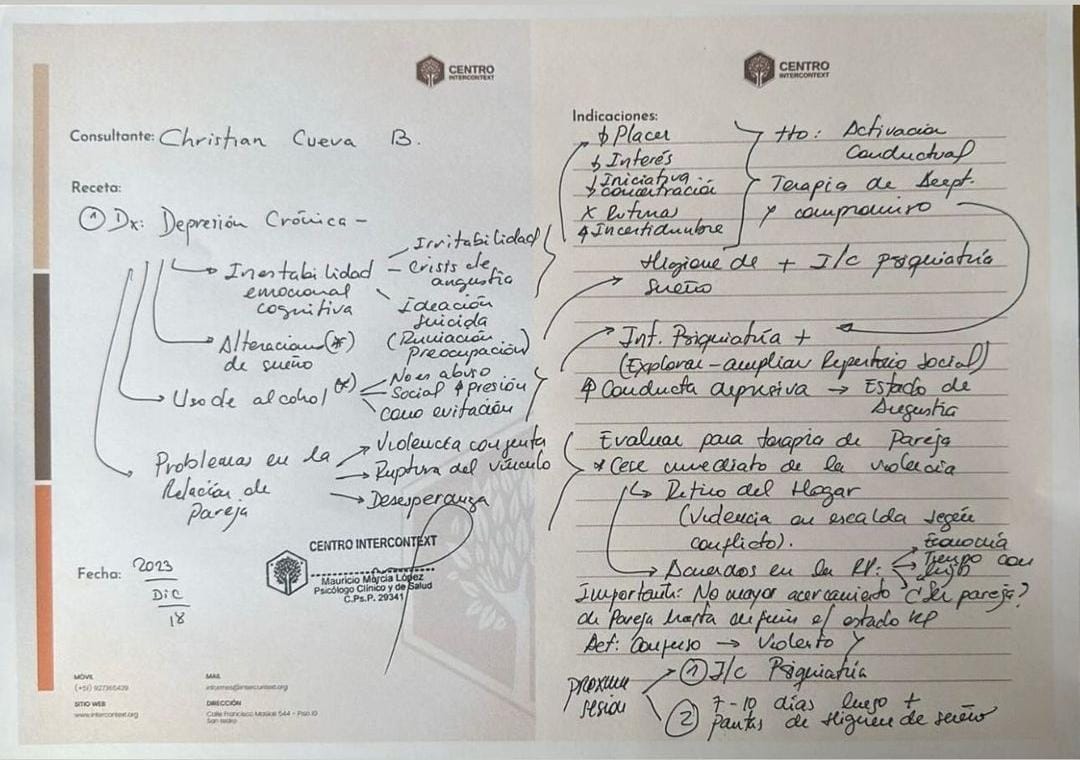 CENTRO
INTERCONTEXT
Consultante: Christian Cueva B.
Receta:
① Dx: Depresión Crónica -
Inestabilidad
emocional
cognitiva
Irritabilidad
- Crisis de
angustia
Ideación
suicida
(Rumiación
Preocupación)
Alteracion (*)
de sueño
Uso de alcohol (*)
No es abuso
Social ↑ presión
como evitación
Problemas en la
Relación de
pareja
Violencia conjunta
Ruptura del vínculo
Desesperanza
Fecha: 2023
Dic
18
CENTRO INTERCONTEXT
Mauricio Murcia López
Psicólogo Clínico y de Salud
C.Ps.P. 29341
MÓVIL
(+51) 927365439
SITIO WEB
www.intercontext.org
MAIL
informes@intercontext.org
DIRECCIÓN
Calle Francisco Masías 544 - Piso 10
San Isidro
CENTRO
INTERCONTEXT
Indicaciones:
↓ Placer
↓ Interés
↓ Iniciativa
↓ concentración
X Rutina
↑ Incertidumbre
tto: Activación
Conductual
Terapia de Acept.
y compromiso
Higiene de + I/c psiquiatría
sueño
Int. Psiquiatría +
(Explorar - ampliar Repertorio social)
↑ Conducta depresiva → Estado de
Angustia
Evaluar para terapia de Pareja
* Cese inmediato de la violencia
Retiro del Hogar
(Violencia en escalda según
conflicto).
Acuerdos en la RP:
Economía
Tiempo con
Important: No mayor acercamiento ¿Ser pareja?
de Pareja hasta el estado
Act: Confuso → Violento y
Proxima
sesión
① I/c Psiquiatría
② 7-10 días luego +
Pautas de Higiene de sueño